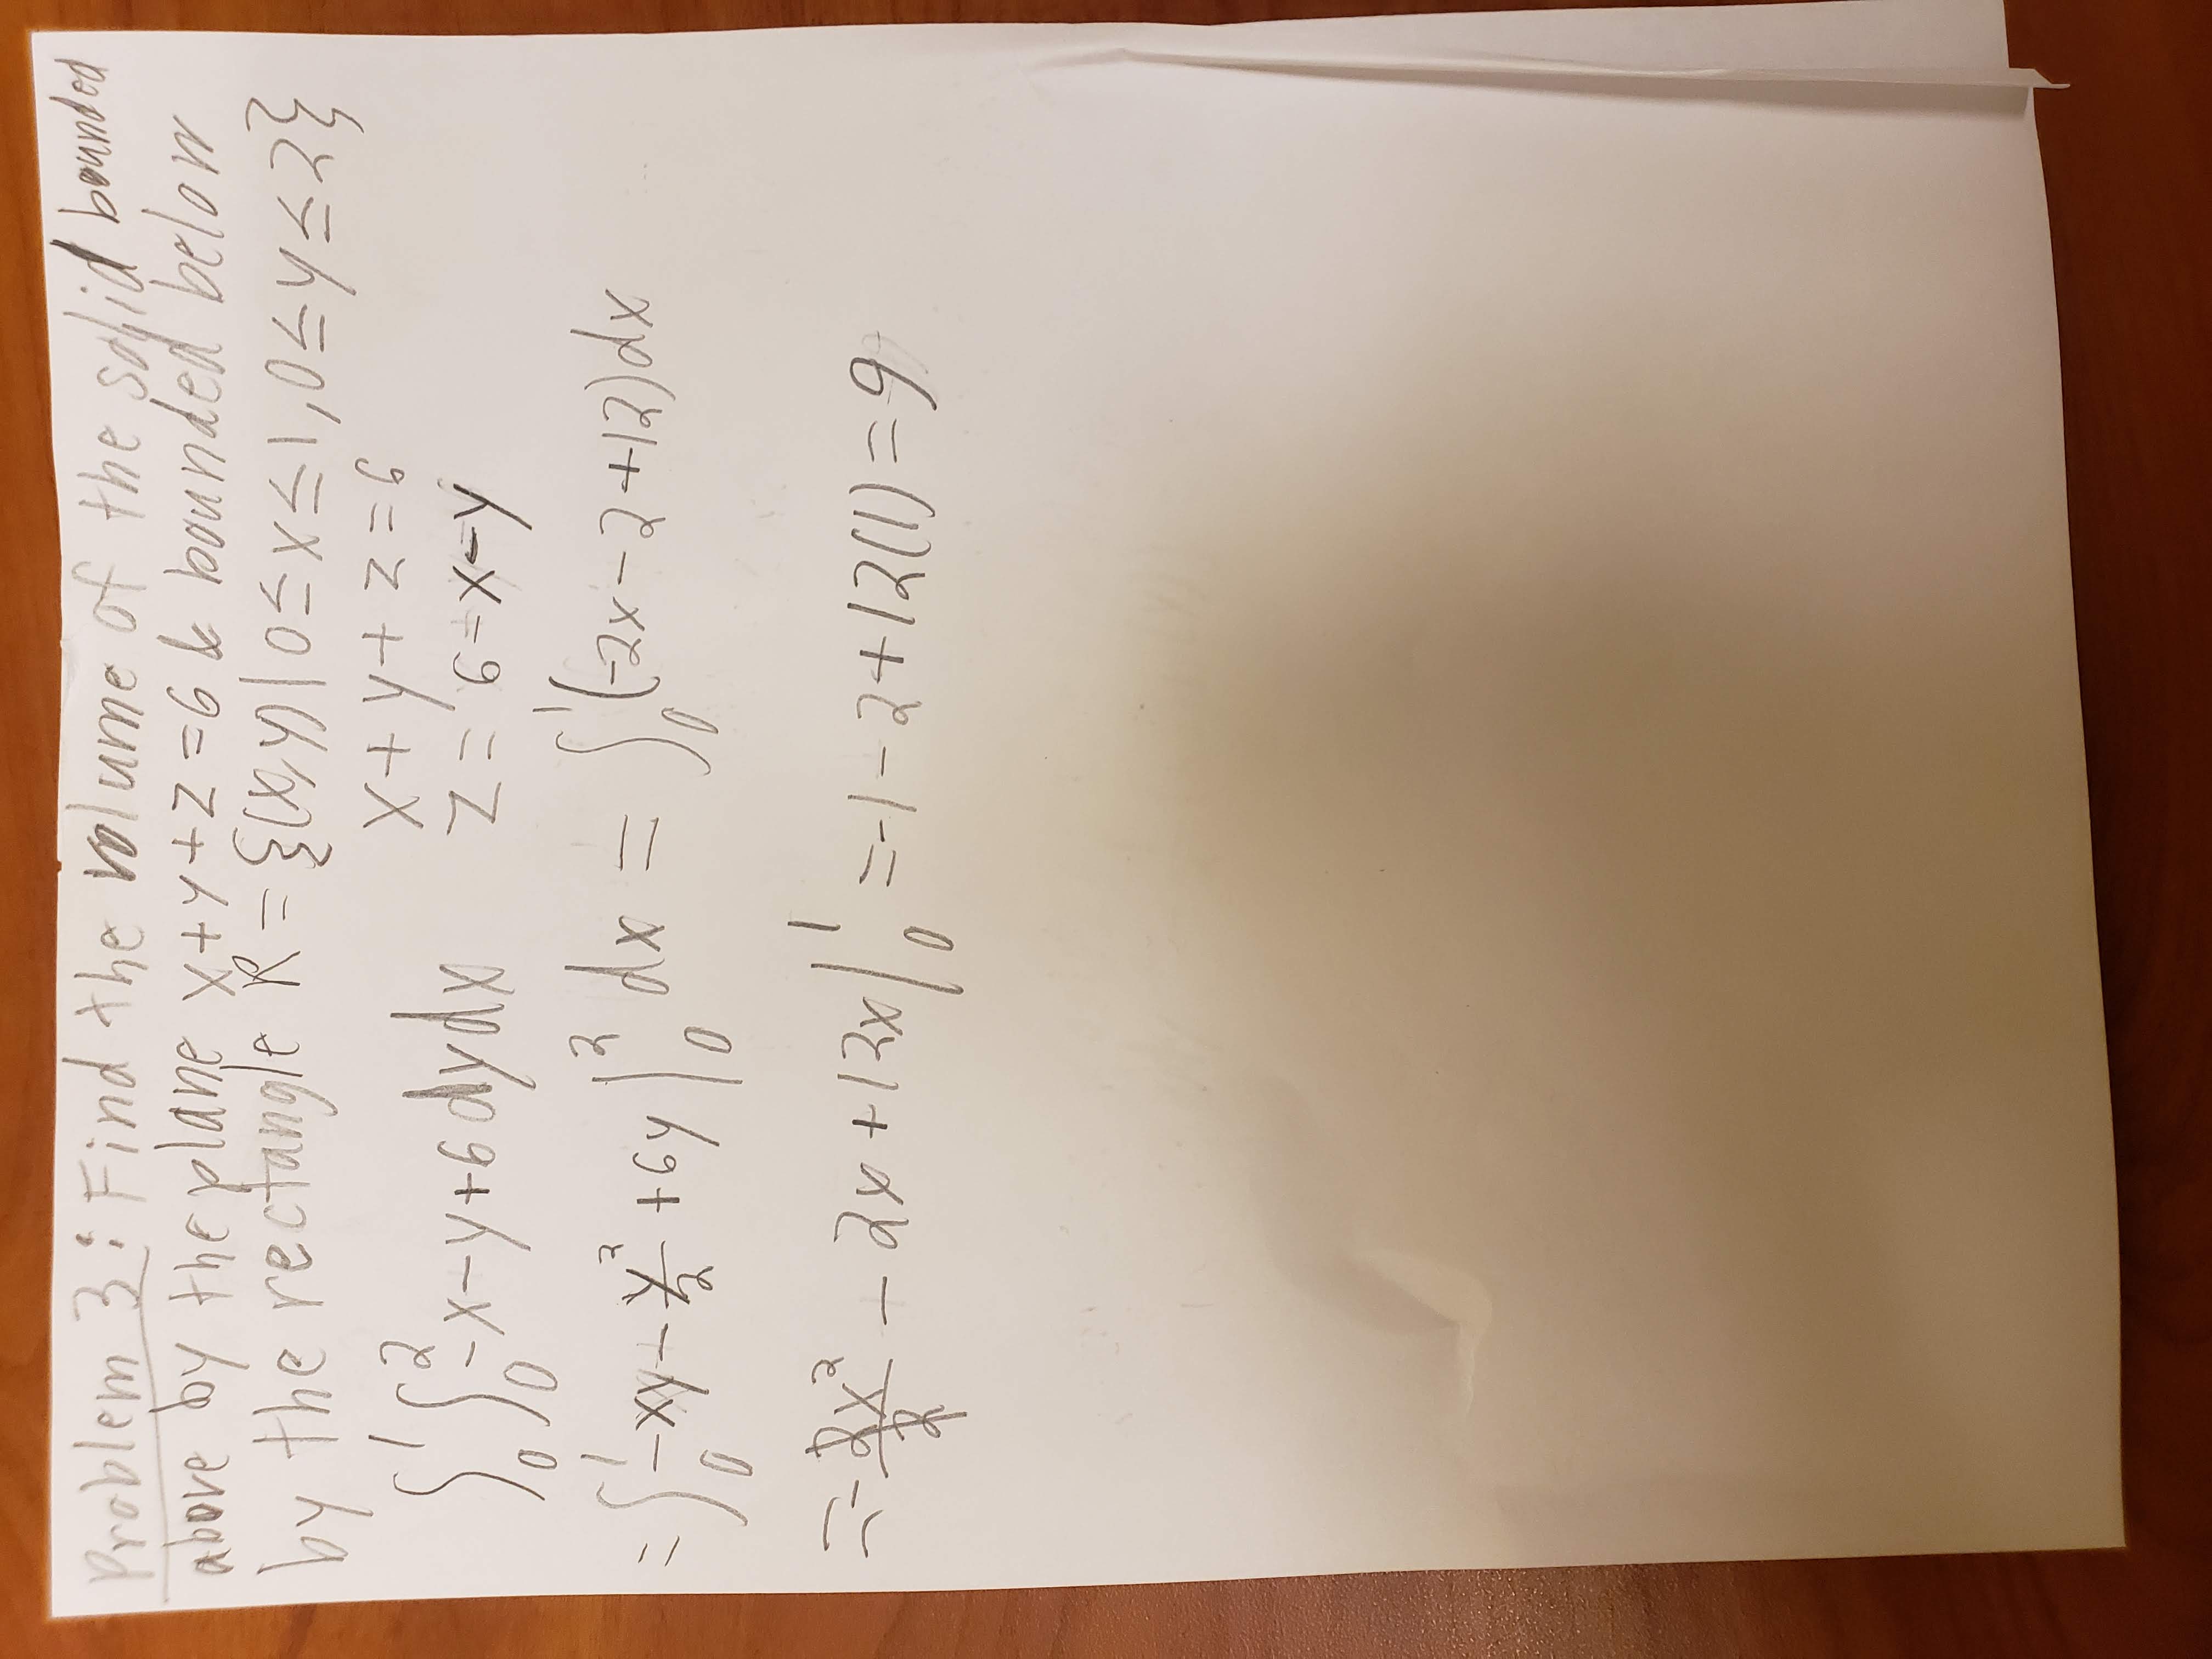 Problem 3: Find the volume of the solid bounded
above by the plane x+y+z=6 & bounded below
by the rectangle R={(x,y)|0≤x≤1,0≤y≤2}
x+y+z=6
∫₀¹∫₀² -x-y+6 dydx
z=6-x-y
=∫₀¹ -xy-y²/2+6y|₀² dx = ∫₀¹(-2x-2+12)dx
=-2x²/2-2x+12x|₀¹ =-1-2+12(1)=9